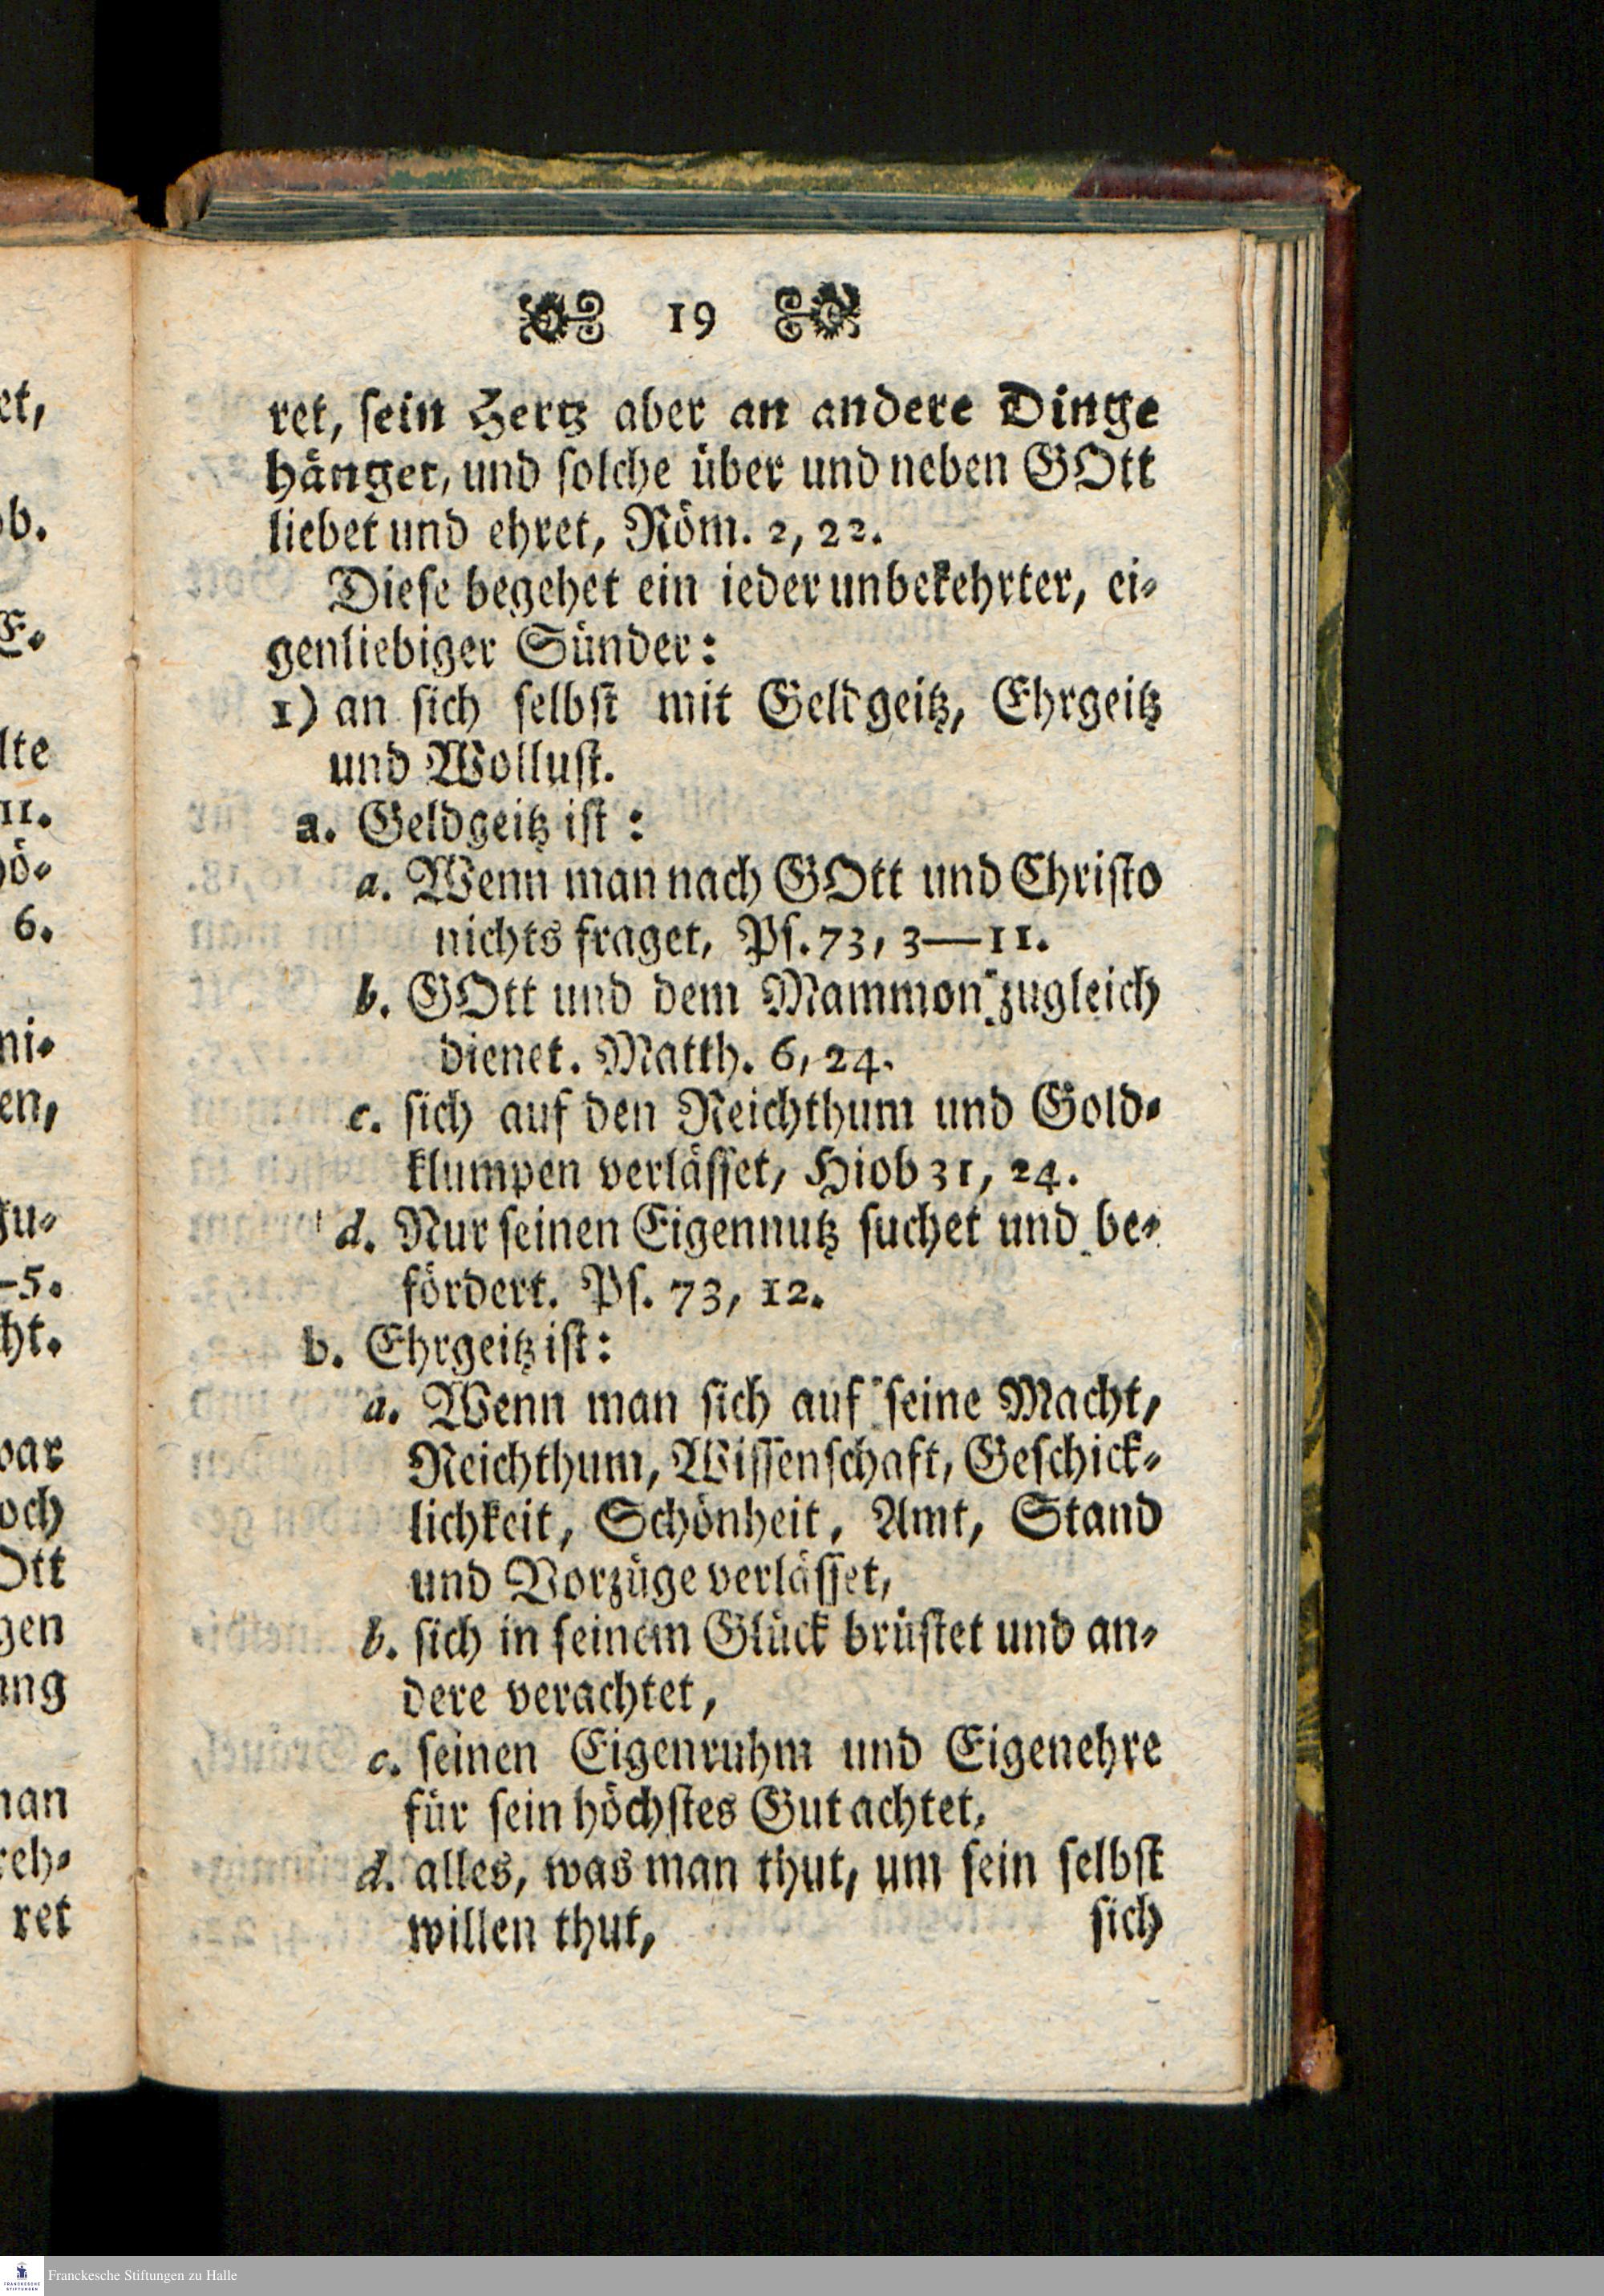 19
ret, ſein Hertz aber an andere Dinge
hänget, und ſolche über und neben GOtt
liebet und ehret, Röm. 2, 22.
Dieſe begehet ein ieder unbekehrter, ei-
genliebiger Sünder:
1) an ſich ſelbſt mit Geldgeitz, Ehrgeitz
und Wolluſt.
a. Geldgeitz iſt:
a. Wenn man nach GOtt und Chriſto
nichts fraget, Pſ. 73, 3—11.
b. GOtt und dem Mammon zugleich
dienet. Matth. 6, 24.
c. ſich auf den Reichthum und Gold-
klumpen verläſſet, Hiob 31, 24.
d. Nur ſeinen Eigennutz ſuchet und be-
fördert. Pſ. 73, 12.
b. Ehrgeitz iſt:
a. Wenn man ſich auf ſeine Macht,
Reichthum, Wiſſenſchaft, Geſchick-
lichkeit, Schönheit, Amt, Stand
und Vorzüge verläſſet,
b. ſich in ſeinem Glück brüſtet und an-
dere verachtet,
c. ſeinen Eigenruhm und Eigenehre
für ſein höchſtes Gut achtet,
d. alles, was man thut, um ſein ſelbſt
willen thut,
ſich
et,
ob.
E-
lte
11.
hö-
6.
ni-
en,
Ju-
—5.
ht.
och
Ott
gen
ung
man
reh-
ret
FRANCKESCHE STIFTUNGEN
Franckesche Stiftungen zu Halle